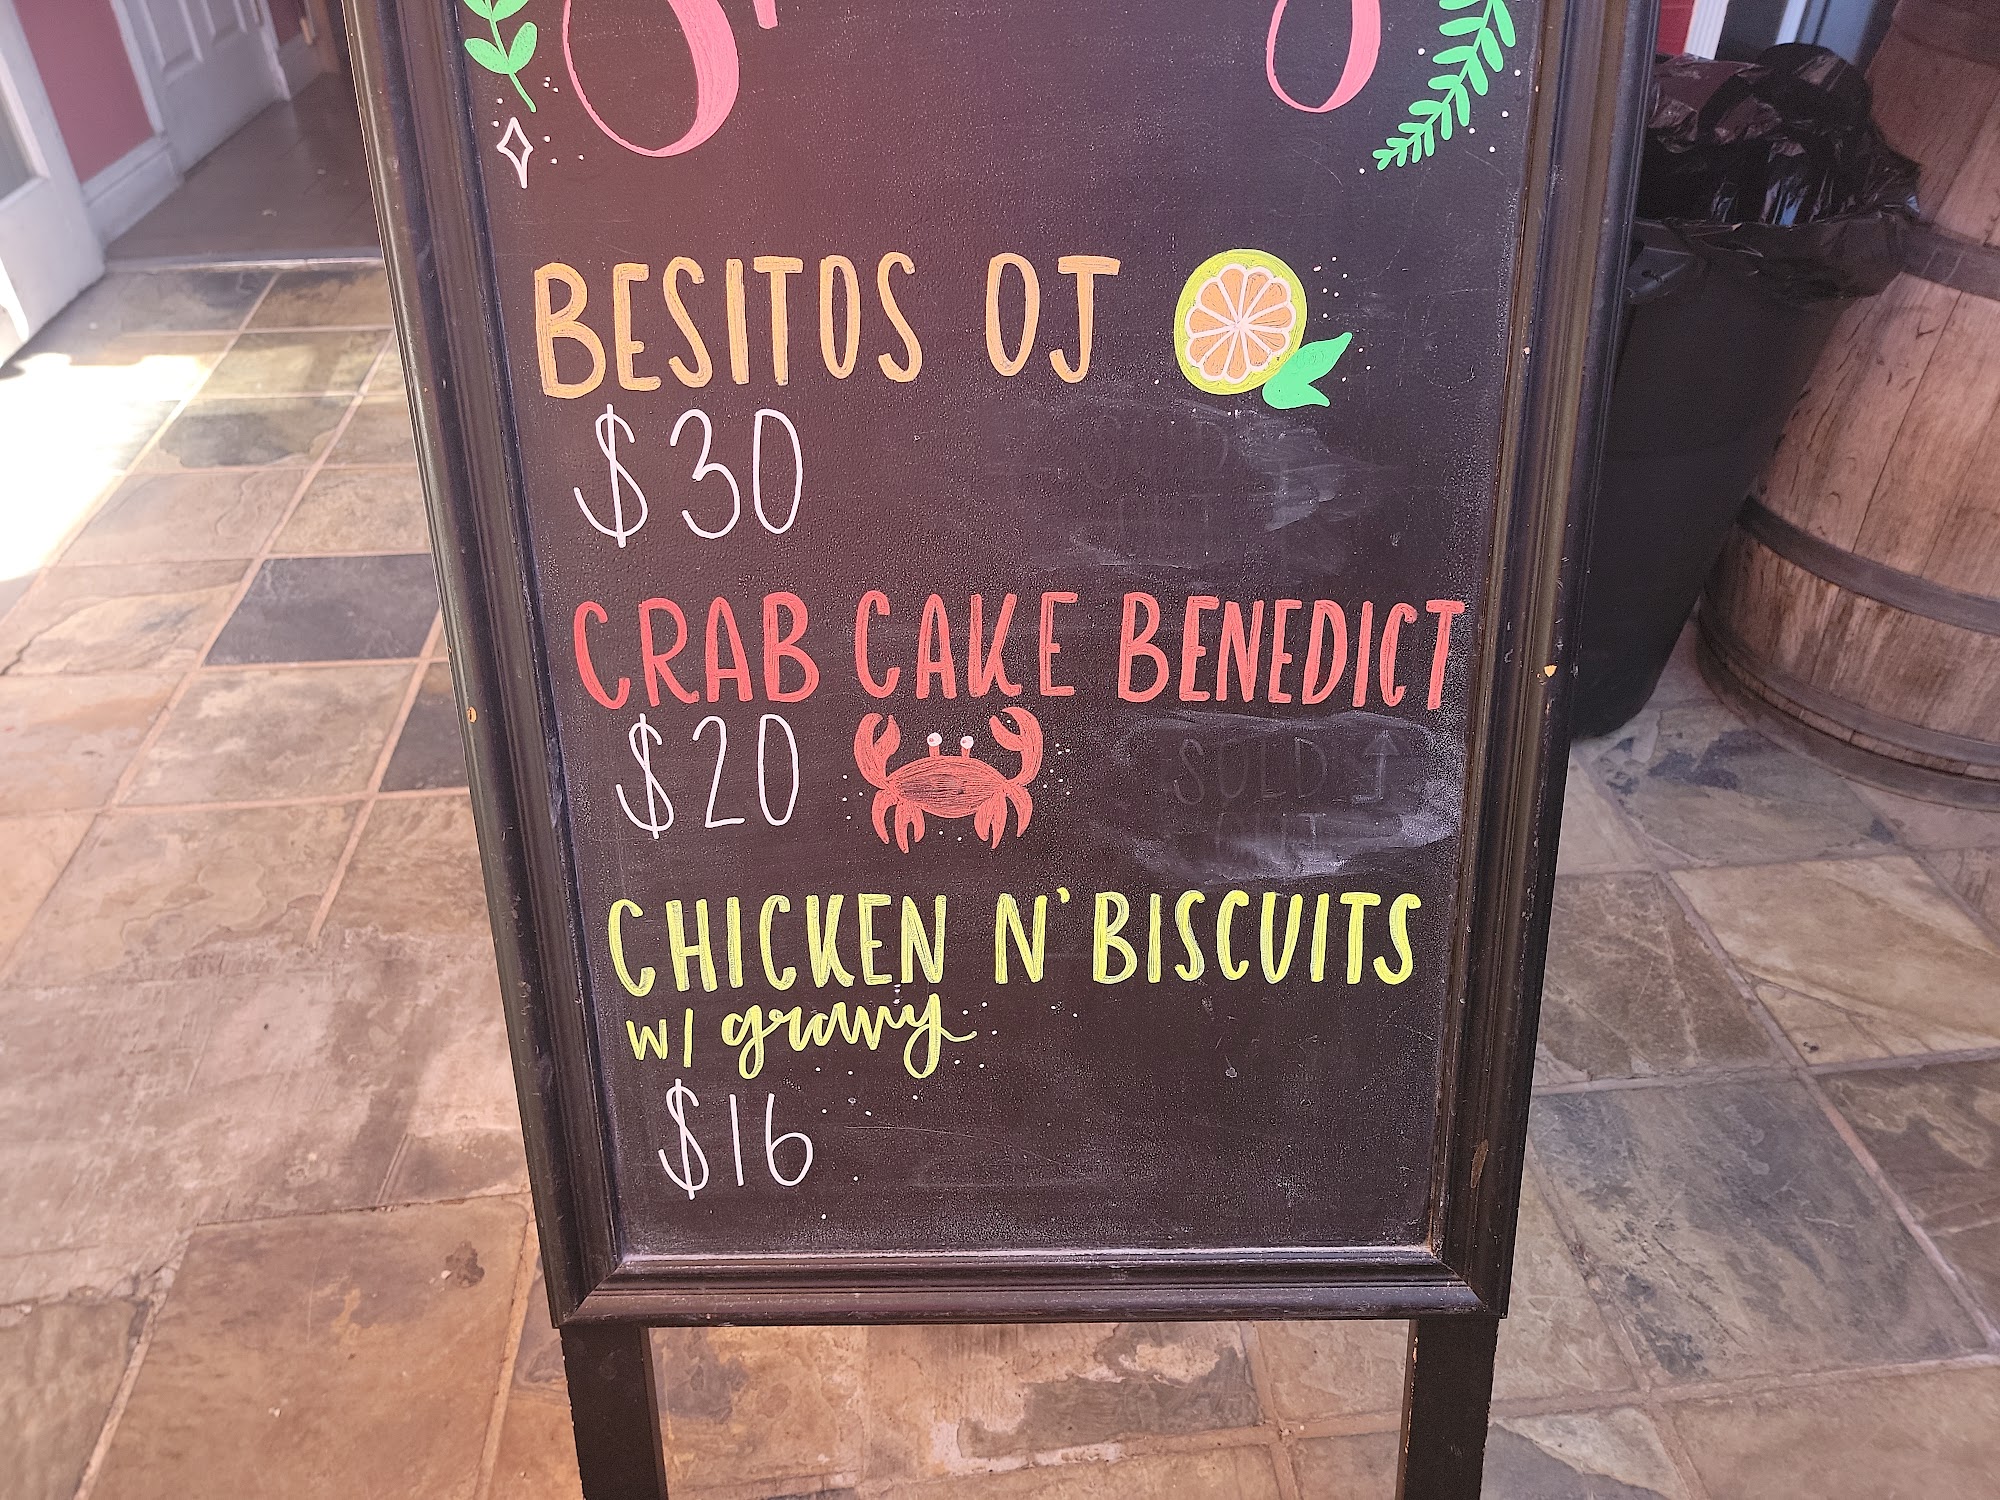 BESITOS OJ
$30
CRAB CAKE BENEDICT
$20
SOLD
CHICKEN N' BISCUITS
w/ gravy
$16